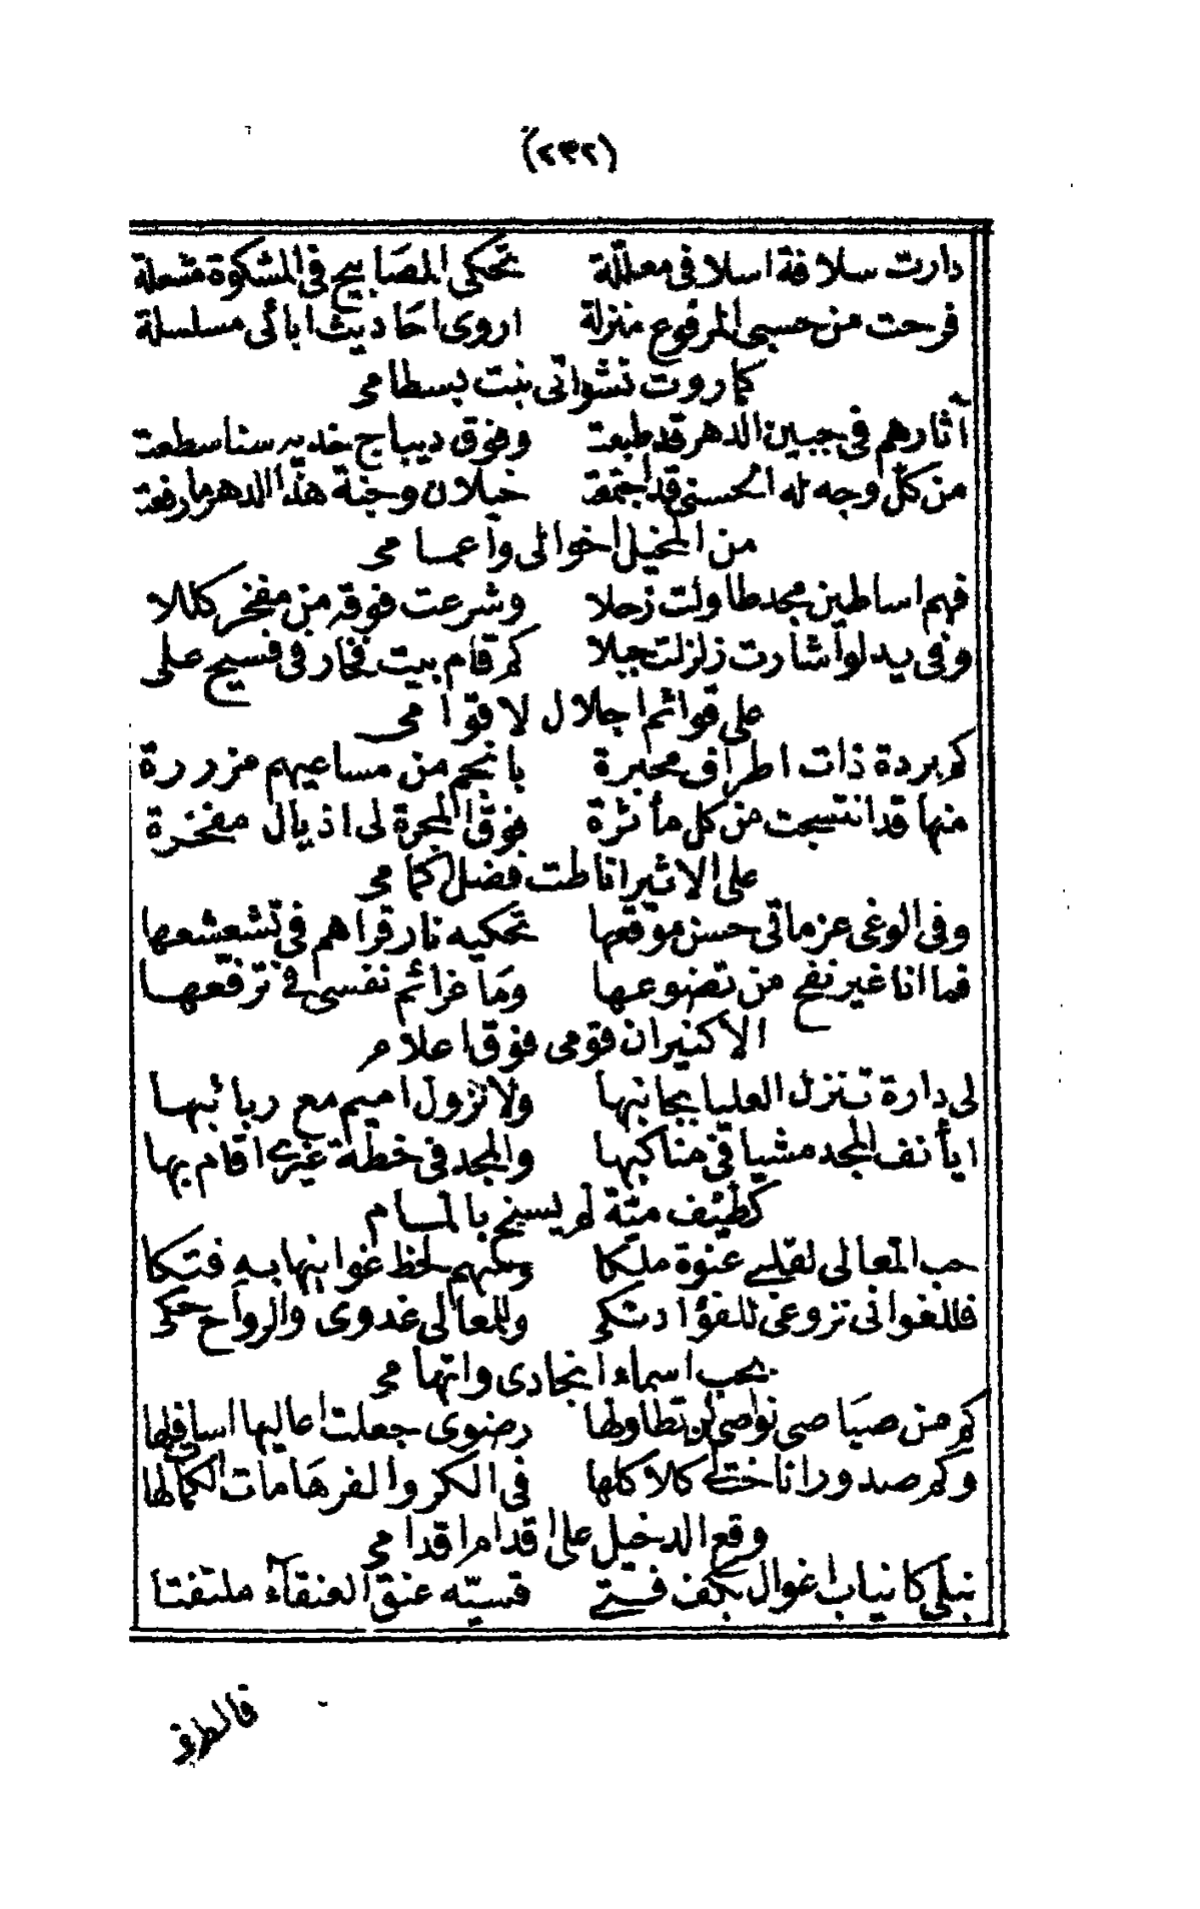 (٢٣٢)
دارت سلافة اسلافى معللة تحكى المصابيح فى المشكوة مشعلة
فرحت من حسبى المرفوع منزلة اروى احاديث ابائى مسلسلة
كما روت نشواتى بنت بسطامى
آثارهم فى جبين الدهر قد طبعت وفوق ديباج خديه سنا سطعت
من كل وجه له الحسنى قد اجتمعت خيلان وجنة هذا الدهر ما رفعت
من المخيل اخوالى وأعمامى
فهم اساطين مجد طاولت زحلا وشرعت فوقه من مفخر كللا
وفى يد لو أشارت زلزلت جبلا كم قام بيت فخار فى فسيح على
على قوائم اجلال لاقوامى
كم بردة ذات اطراف محبرة بانجم من مساعيهم مزررة
منها قد انتسجت من كل مأثرة فوق المجرة لى اذيال مفخرة
على الاثير اناطت فضل اكمامى
وفى الوغى عزماتى حسن موقعها تحكيه نار قراهم فى تشعشعها
فما انا غير نفح من تضوعها وما غرائم نفسى فى ترفعها
الا كنيران قومى فوق اعلام
لى دارة تنزل العليا بجانبها ولا نزول اميم مع ربائبها
ايأنف المجد مشيا فى مناكبها والمجد فى خطة غيرى اقام بها
كطيف مية لم يسنح بالمسام
حب المعالى لقلبى عنوة ملكا وسهم لحظ غوانيها به فتكا
فللغوانى نزوعى للفؤاد شكى وللمعالى غدوى والرواح حكى
بحب اسماء انجادى واتهامى
كم من صياصى نواصى لن تطاولها رضوى جعلت اعاليها اسافلها
وكم صدور اناخت لى كلاكلها فى الكر والفر هامات الكمى لها
وقع الدخيل على اقدام اقدامى
نبلى كانياب اغوال بكف فتى قسيه عنق العنقآء ملتفتا
فالطرف